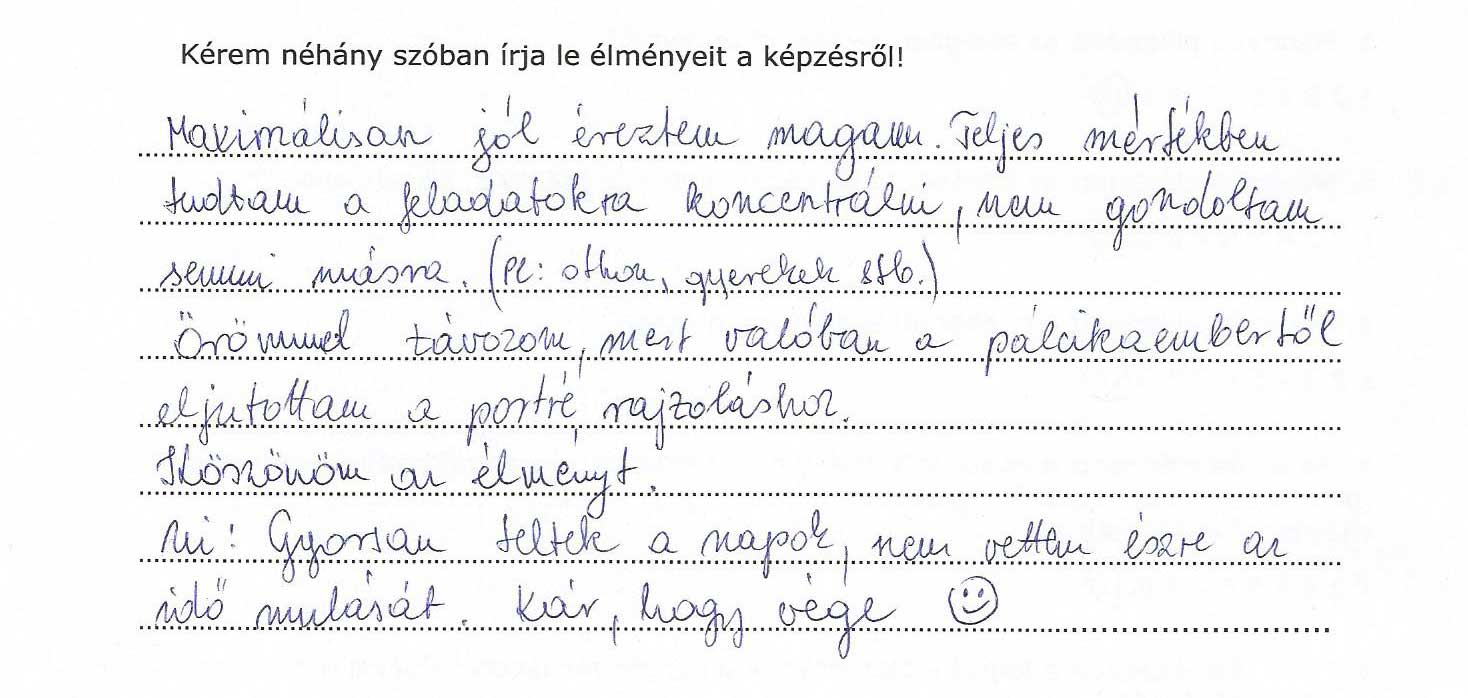 Kérem néhány szóban írja le élményeit a képzésről!
Maximálisan jól éreztem magam. Teljes mértékben
tudtam a feladatokra koncentrálni, nem gondoltam
semmi másra. (Pl: otthon, gyerekek stb.)
Örömmel távozom, mert valóban a pálcikaembertől
eljutottam a portré rajzoláshoz.
Köszönöm az élményt.
Ui! Gyorsan teltek a napok, nem vettem észre az
idő mulását. Kár, hogy vége ☺